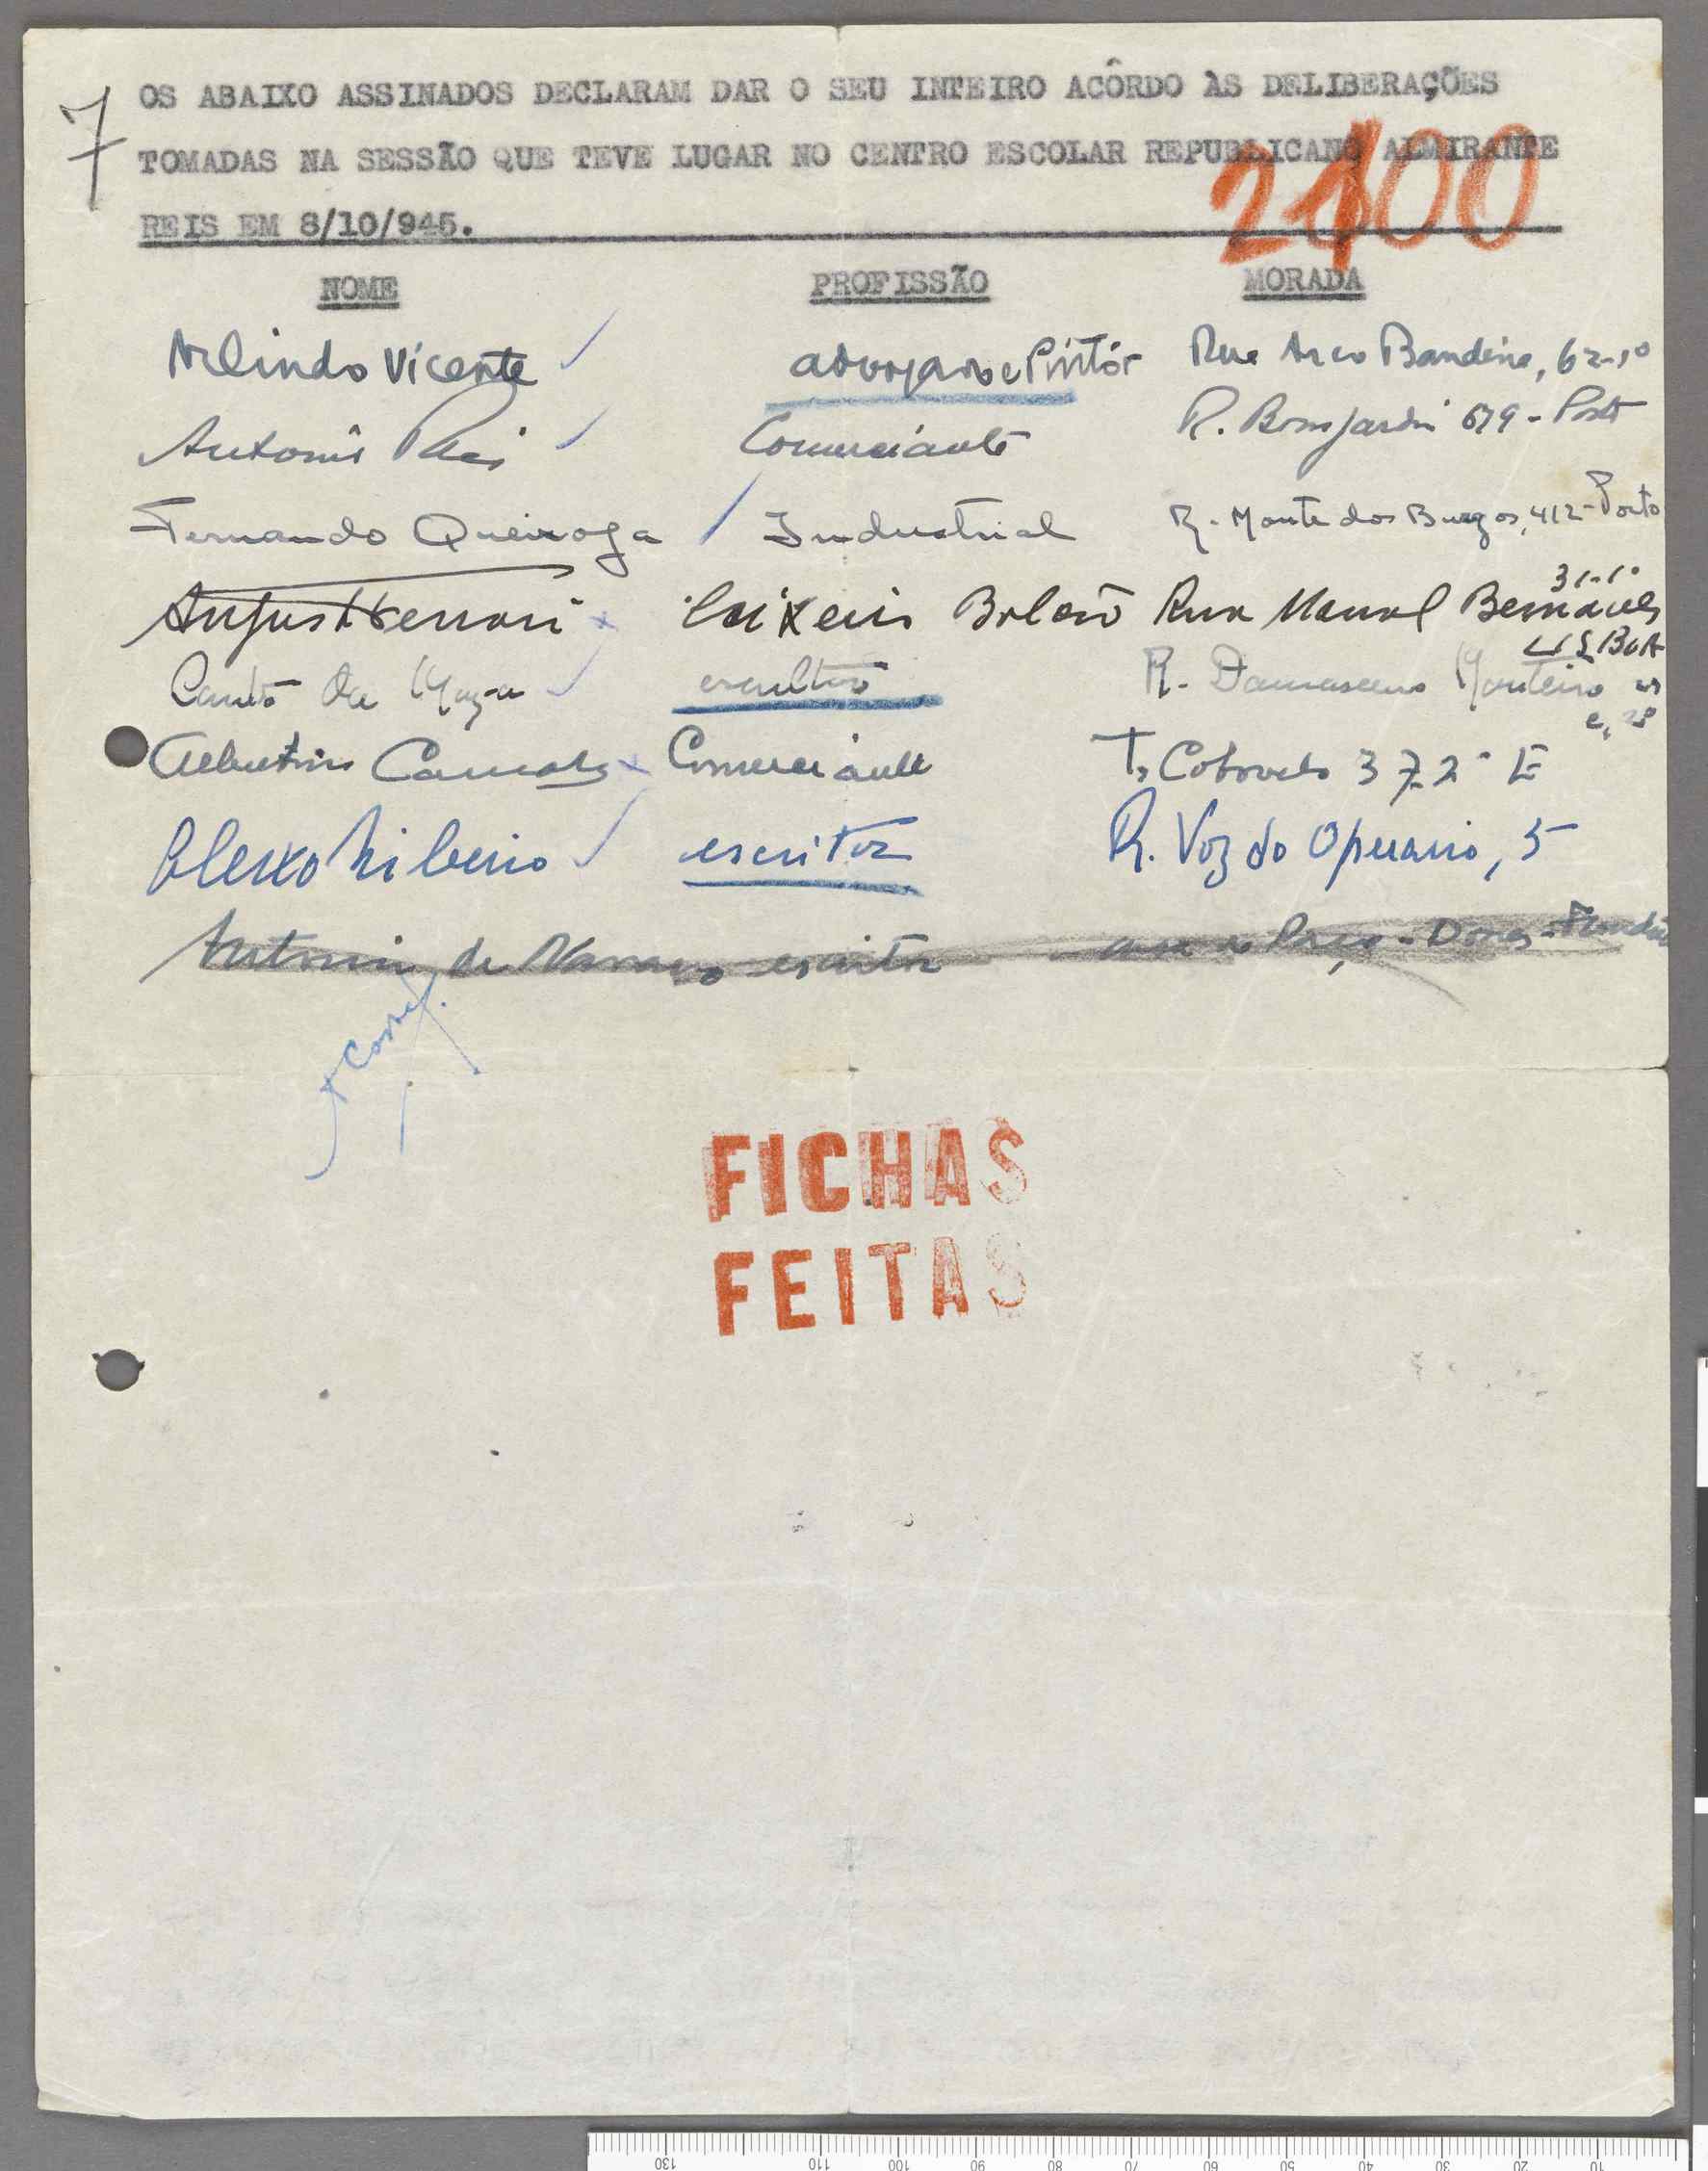 7
OS ABAIXO ASSINADOS DECLARAM DAR O SEU INTEIRO ACÔRDO ÀS DELIBERAÇÕES
TOMADAS NA SESSÃO QUE TEVE LUGAR NO CENTRO ESCOLAR REPUBLICANO ALMIRANTE
REIS EM 8/10/945.
NOME PROFISSÃO MORADA
Arlindo Vicente advogado e Pintór Rua Arco Bandeira, 62-1º
António Comerciante R. Bomjardim 679 - Porto
Fernando Queiroga Industrial R. Monte dos Burgos, 412 - Porto
31-1º
Augusto Ferrari Caixeiro Rua Manoel Bernardes
LISBOA
Canto da Maya escultor R. Damasceno Monteiro
Comerciante T. 37 2º E
Aleixo Ribeiro escritor R. Voz do Operario, 5
Antonio de Navarro escritor
FICHAS
FEITAS
130 110 100 90 80 70 60 50 40 30 20 10